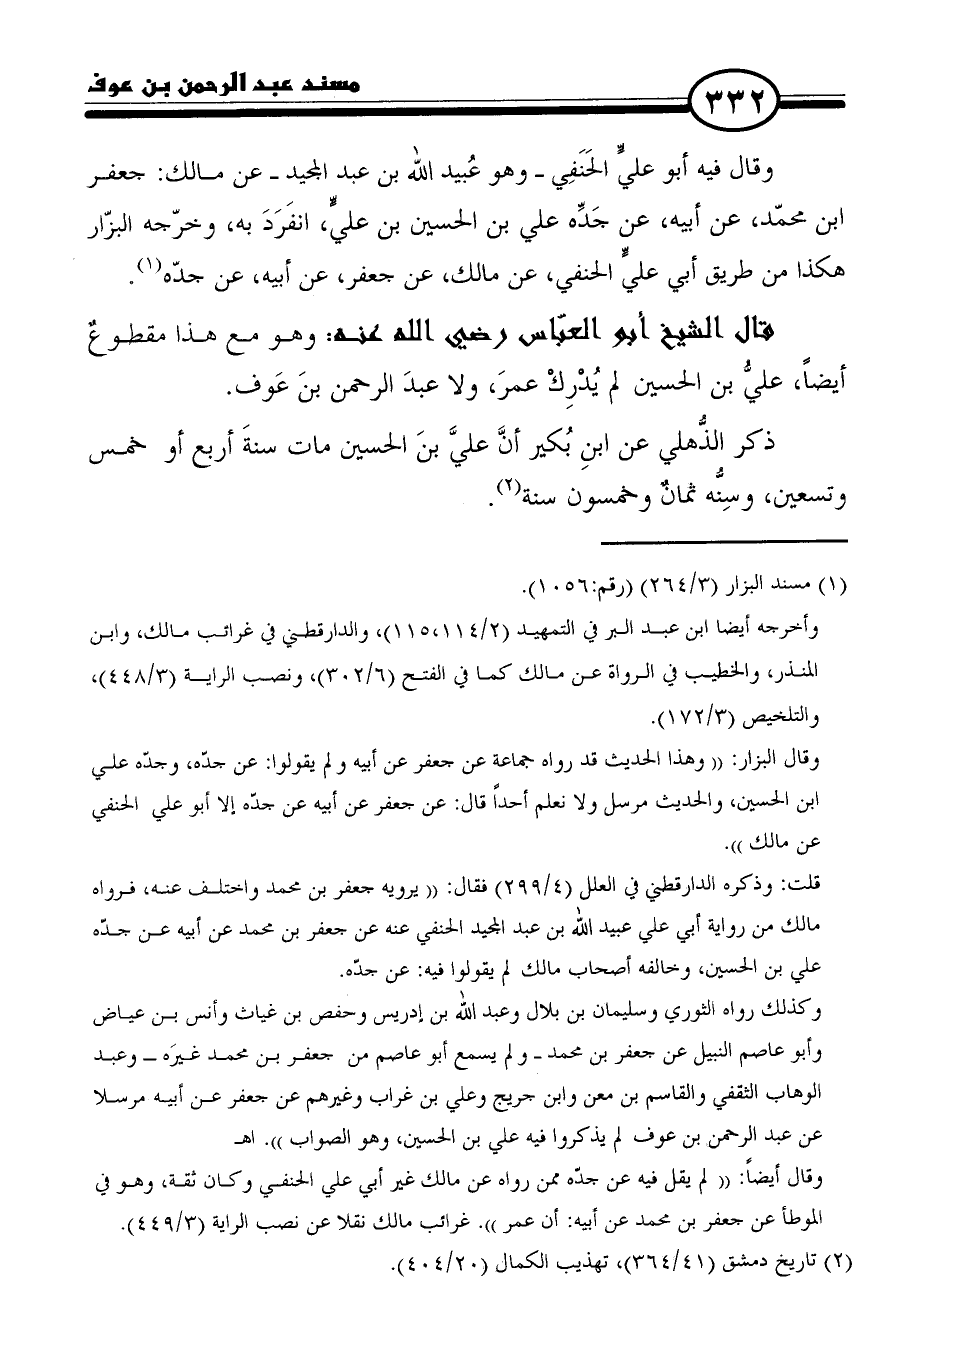 مسند عبد الرحمن بن عوف
٣٣٢
وقال فيه أبو عليٍّ الحَنَفِي ـ وهو عُبيد الله بن عبد المجيد ـ عن مالك: جعفر
ابن محمّد، عن أبيه، عن جَدِّه علي بن الحسين بن عليٍّ، انفَرَدَ به، وخرّجه البزّار
هكذا من طريق أبي عليٍّ الحنفي، عن مالك، عن جعفر، عن أبيه، عن جدّه(١).
قال الشيخ أبو العبّاس رضي الله عنه: وهو مع هذا مقطوعٌ
أيضاً، عليُّ بن الحسين لم يُدْرِكْ عمرَ، ولا عبدَ الرحمن بنَ عَوف.
ذكر الذُّهلي عن ابنِ بُكير أنَّ عليَّ بنَ الحسين مات سنةَ أربع أو خمس
وتسعين، وسِنُّه ثمانٌ وخمسون سنة(٢).
(١) مسند البزار (٢٦٤/٣) (رقم:١٠٥٦).
وأخرجه أيضا ابن عبد البر في التمهيد (١١٥،١١٤/٢)، والدارقطني في غرائب مالك، وابن
المنذر، والخطيب في الرواة عن مالك كما في الفتح (٣٠٢/٦)، ونصب الراية (٤٤٨/٣)،
والتلخيص (١٧٢/٣).
وقال البزار: (( وهذا الحديث قد رواه جماعة عن جعفر عن أبيه و لم يقولوا: عن جده، وجدّه علي
ابن الحسين، والحديث مرسل ولا نعلم أحداً قال: عن جعفر عن أبيه عن جدّه إلا أبو علي الحنفي
عن مالك )).
قلت: وذكره الدارقطني في العلل (٢٩٩/٤) فقال: (( يرويه جعفر بن محمد واختلف عنه، فرواه
مالك من رواية أبي علي عبيد الله بن عبد المجيد الحنفي عنه عن جعفر بن محمد عن أبيه عن جدّه
علي بن الحسين، وخالفه أصحاب مالك لم يقولوا فيه: عن جدّه.
وكذلك رواه الثوري وسليمان بن بلال وعبد الله بن إدريس وحفص بن غياث وأنس بن عياض
وأبو عاصم النبيل عن جعفر بن محمد ـ و لم يسمع أبو عاصم من جعفر بن محمد غيرَه ـ وعبد
الوهاب الثقفي والقاسم بن معن وابن جريج وعلي بن غراب وغيرهم عن جعفر عن أبيه مرسلا
عن عبد الرحمن بن عوف لم يذكروا فيه علي بن الحسين، وهو الصواب )). اهـ
وقال أيضاً: (( لم يقل فيه عن جدّه ممن رواه عن مالك غير أبي علي الحنفي وكان ثقة، وهو في
الموطأ عن جعفر بن محمد عن أبيه: أن عمر )). غرائب مالك نقلا عن نصب الراية (٤٤٩/٣).
(٢) تاريخ دمشق (٣٦٤/٤١)، تهذيب الكمال (٤٠٤/٢٠).